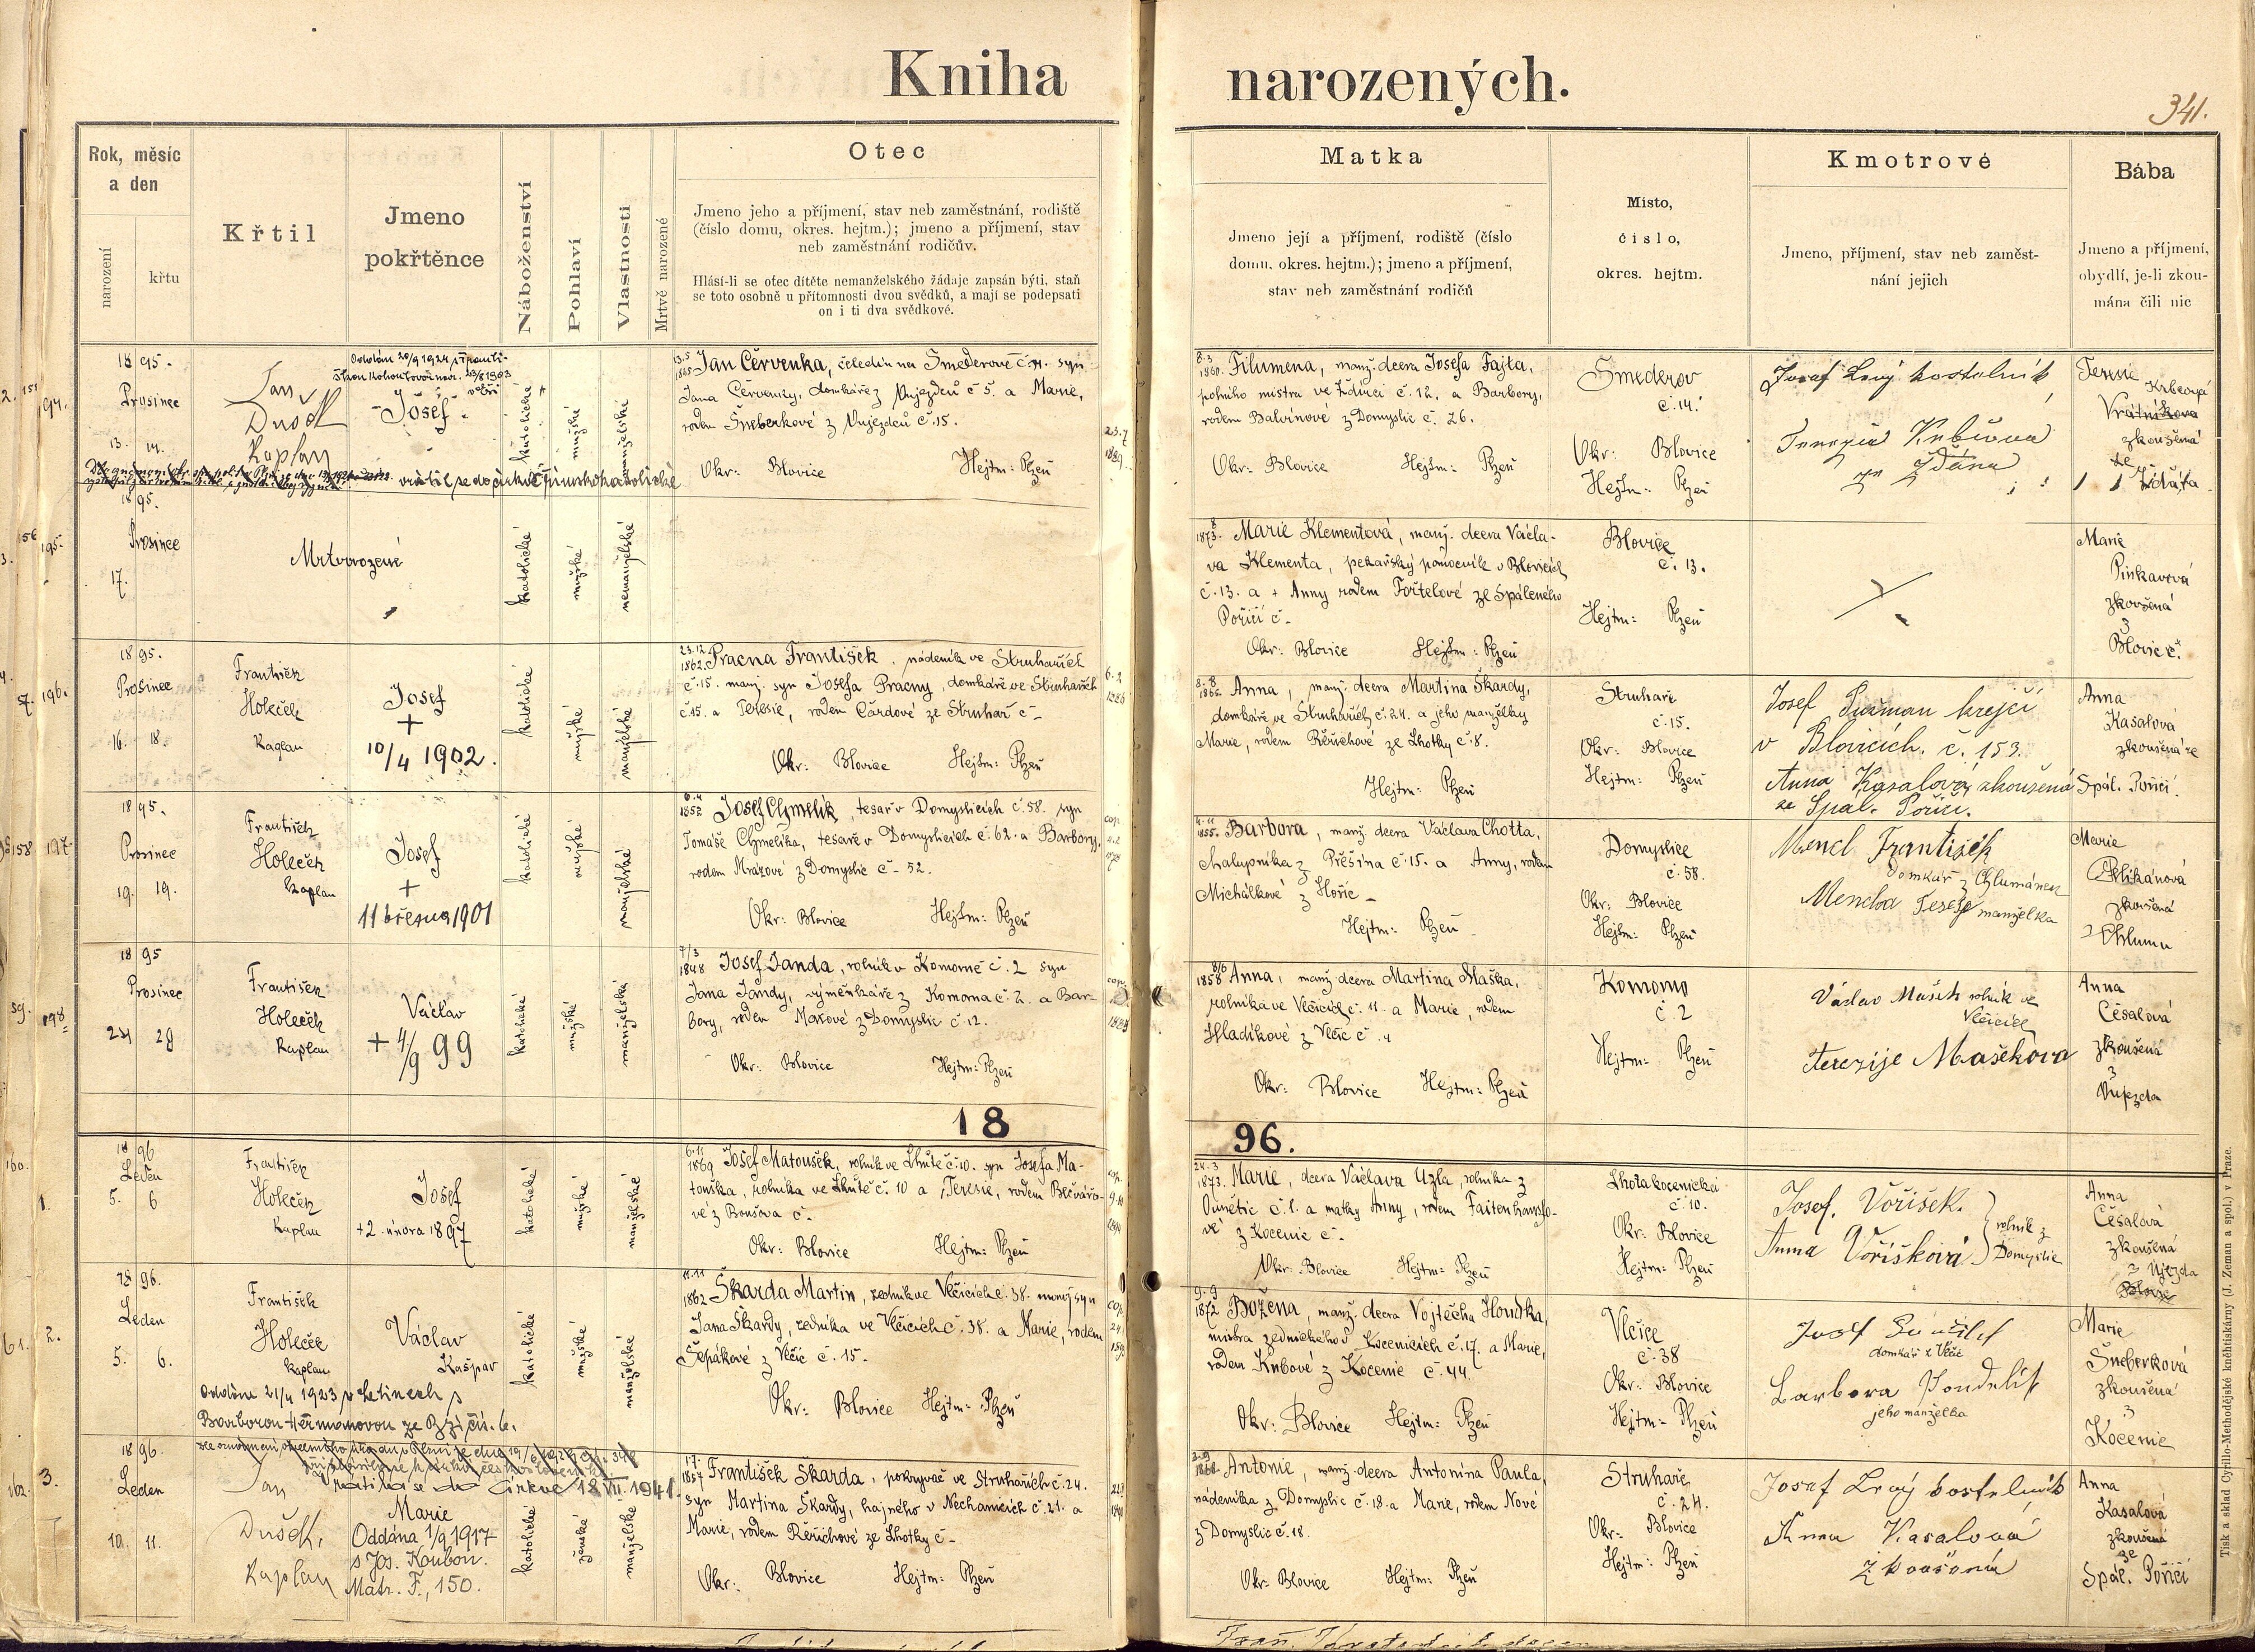 Kniha narozených.
341.
Rok, měsíc
a den
narození
křtu
Křtil
Jmeno
pokřtěnce
Náboženství
Pohlaví
Vlastnosti
Mrtvě narozené
Otec
Jmeno jeho a příjmení, stav neb zaměstnání, rodiště
(číslo domu, okres. hejtm.); jmeno a příjmení, stav
neb zaměstnání rodičův.
Hlásí-li se otec dítěte nemanželského žádaje zapsán býti, staň
se toto osobně u přítomnosti dvou svědků, a mají se podepsati
on i ti dva svědkové.
Matka
Jmeno její a příjmení, rodiště (číslo
domu, okres. hejtm.); jmeno a příjmení,
stav neb zaměstnání rodičů
Misto,
číslo,
okres. hejtm.
Kmotrové
Jmeno, příjmení, stav neb zaměst-
nání jejich
Bába
Jmeno a příjmení,
obydlí, je-li zkou-
mána čili nic
194.
1895.
Prosinec
13. 14.
Jan
Dušek
Kaplan
Josef
katolické
mužské
manželské
vrátil se do církve římskokatolické
Jan Červenka, čeledín na Smederově č. 14. syn
Jana Červenky, domkáře z Vujezdců č 5. a Marie,
rodem Šneberkové z Vujezdců č. 15.
Okr: Blovice Hejtm: Plzeň
8.3
1860. Filumena, manž. dcera Josefa Fajta,
polního mistra ve Ždírci č. 12. a Barbory,
rodem Balvínové z Domyslic č. 26.
Okr: Blovice Hejtm: Plzeň
Smederov
č. 14.
Okr: Blovice
Hejtm: Plzeň
Josef Levý kostelník
Terezie
zkoušená
195.
1895.
Prosinec
17.
Mrtvorozené
katolické
mužské
nemanželské
1873. Marie Klementová, manž. dcera Václa-
va Klementa, pekařský pomocník v Blovicích
č. 13. a + Anny rodem Fořtelové ze Spáleného
Poříčí č -
Okr: Blovice Hejtm: Plzeň
Blovice
č. 13.
Hejtm: Plzeň
Marie
Pinkavová
zkoušená
z
Blovic č.
196.
1895.
Prosinec
16. 18.
František
Holeček
Kaplan
Josef
+
10/4 1902.
katolické
mužské
manželské
23.12
1862. Pracna František, nádeník ve Struhařích
č. 15. manž. syn Josefa Pracny, domkáře ve Struhařích
č. 15. a Terezie, rodem Čárdové ze Struhař č -
Okr: Blovice Hejtm: Plzeň
8.8
1866. Anna, manž. dcera Martina Škardy,
domkáře ve Struhařích č. 24. a jeho manželky
Marie, rodem Řeřichové ze Lhotky č. 8.
Hejtm: Plzeň
Struhaře
č. 15.
Okr: Blovice
Hejtm: Plzeň
v Blovicích. č. 153.
Anna Kasalová, zkoušená
ze Spál. Poříčí.
Anna
Kasalová
zkoušená ze
Spál. Poříčí.
158 197
1895.
Prosinec
19. 19.
František
Holeček
kaplan
Josef
+
11 března 1901
katolické
mužské
manželské
1852 Josef Chmelík, tesař v Domyslicích č. 58. syn
Tomáše Chmelíka, tesaře v Domyslicích č. 62. a Barbory,
rodem Mrázové z Domyslic č - 52.
Okr: Blovice Hejtm: Plzeň
4.11
1855. Barbora, manž. dcera Václava Chotta,
chalupníka z Přešína č. 15. a Anny, rodem
Michálkové z Hořic -
Hejtm: Plzeň
Domyslice
č. 58.
Okr: Blovice
Hejtm: Plzeň
Mencl František
domkář z Chlumánek
manželka
Marie
zkoušená
z Chlumu
198
1895
Prosinec
František
Holeček
Kaplan
Václav
+ 4/9 99
katolické
mužské
manželské
7/3
1848 Josef Janda, rolník v Komorně č. 2 syn
Jana Jandy, výměnkáře z Komorna č. 2. a Bar-
bory, rodem Maxové z Domyslic č. 12.
Okr: Blovice Hejtm: Plzeň
1858 Anna, manž. dcera Martina Maška,
rolníka ve Vlčicích č. 11. a Marie, rodem
Hladíkové z Vlčic č. 4
Okr: Blovice Hejtm: Plzeň
Komorno
č. 2
Hejtm: Plzeň
Václav Mašek rolník ve
Vlčicích
Terezije Mašková
Anna
Česalová
zkoušená
z
Vujezda
1896.
160. 1.
1896
Leden
5. 6
František
Holeček
Kaplan
Josef
+ 2. února 1897
katolické
mužské
manželské
6.11
1869 Josef Matoušek, rolník ve Lhůtě č. 10. syn Josefa Ma-
touška, rolníka ve Lhůtě č. 10 a Terezie, rodem Bečvářo-
vé z Bousova č -
Okr: Blovice Hejtm: Plzeň
24.3
1873. Marie, dcera Václava Uzla, rolníka z
Ounětic č. 1. a matky Anny, rodem Faitenhanslo-
vé z Kocenic č -
Okr: Blovice Hejtm: Plzeň
č. 10.
Okr: Blovice
Hejtm: Plzeň
Josef. Voříšek.
Anna Voříšková
rolník z
Domyslic
Anna
Česalová
zkoušená
z Újezda
2.
1896.
Leden
5. 6.
František
Holeček
kaplan
Václav
Kašpar
Oddán 21/4 1923 v Letinech s
Barborou Heřmanovou ze Bzí čís. 6.
katolické
mužské
manželské
11.11
1862 Škarda Martin, zedník ve Vlčicích č. 38. manž. syn
Jana Škardy, zedníka ve Vlčicích č. 38. a Marie, rodem
Šepákové z Vlčic č. 15.
Okr: Blovice Hejtm: Plzeň
9.9
1872 Božena, manž. dcera Vojtěcha Houdka,
mistra zednického v Kocenicích č. 17. a Marie,
rodem Knbové z Kocenic č. 44.
Okr: Blovice Hejtm: Plzeň
Vlčice
č. 38
Okr: Blovice
Hejtm: Plzeň
domkář z Vlčic
jeho manželka
Marie
Šneberková
zkoušená
z
Kocenic
162. 3.
1896.
Leden
10. 11.
vrátila se do církve 18.VII.1941.
Jan
Dušek,
Kaplan
Marie
Oddána 1/9 1917
s Jos. Koubou.
Matr. F., 150.
katolické
ženské
manželské
1857 František Škarda, pokrývač ve Struhařích č. 24.
syn Martina Škardy, hajného v Nechanicích č. 21. a
Marie, rodem Řeřichové ze Lhotky č -
Okr: Blovice Hejtm: Plzeň
Antonie, manž. dcera Antonína Paula,
nádeníka z Domyslic č. 18. a Marie, rodem Nové
z Domyslic č. 18.
Okr: Blovice Hejtm: Plzeň
Struhaře
č. 24.
Okr: Blovice
Hejtm: Plzeň
Josef Levý kostelník
Anna Kasalová
zkoušená
Anna
Kasalová
zkoušená
ze
Spál. Poříčí
Tisk a sklad Cyrillo-Methodějské knihtiskárny (J. Zeman a spol.) v Praze.